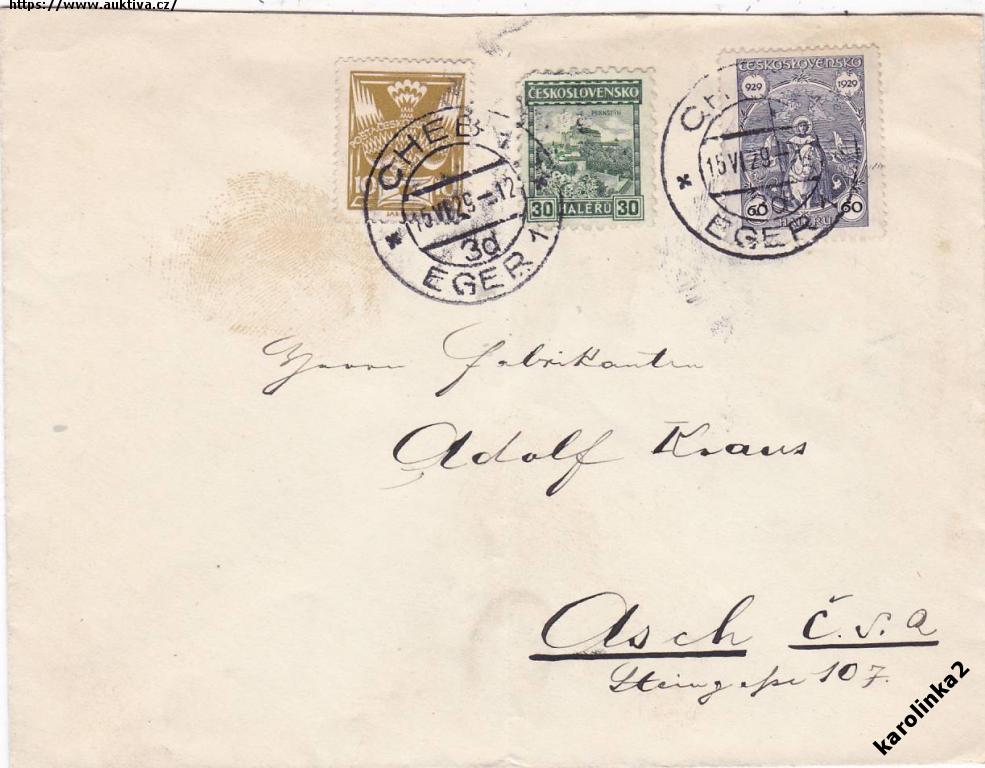 https://www.auktiva.cz/
POŠTA ČESKO
10 10
ČESKOSLOVENSKO
PERNŠTÝN
30 HALÉŘŮ 30
ČESKOSLOVENSKO
929 1929
60 HALÉŘŮ 60
CHEB 1
15.VI.29–12
3d
EGER 1
CH
15.VI.29–12
EGER
Herrn Fabrikanten
Adolf Kraus
Asch Č.s.R
Steingasse 107.
karolinka2